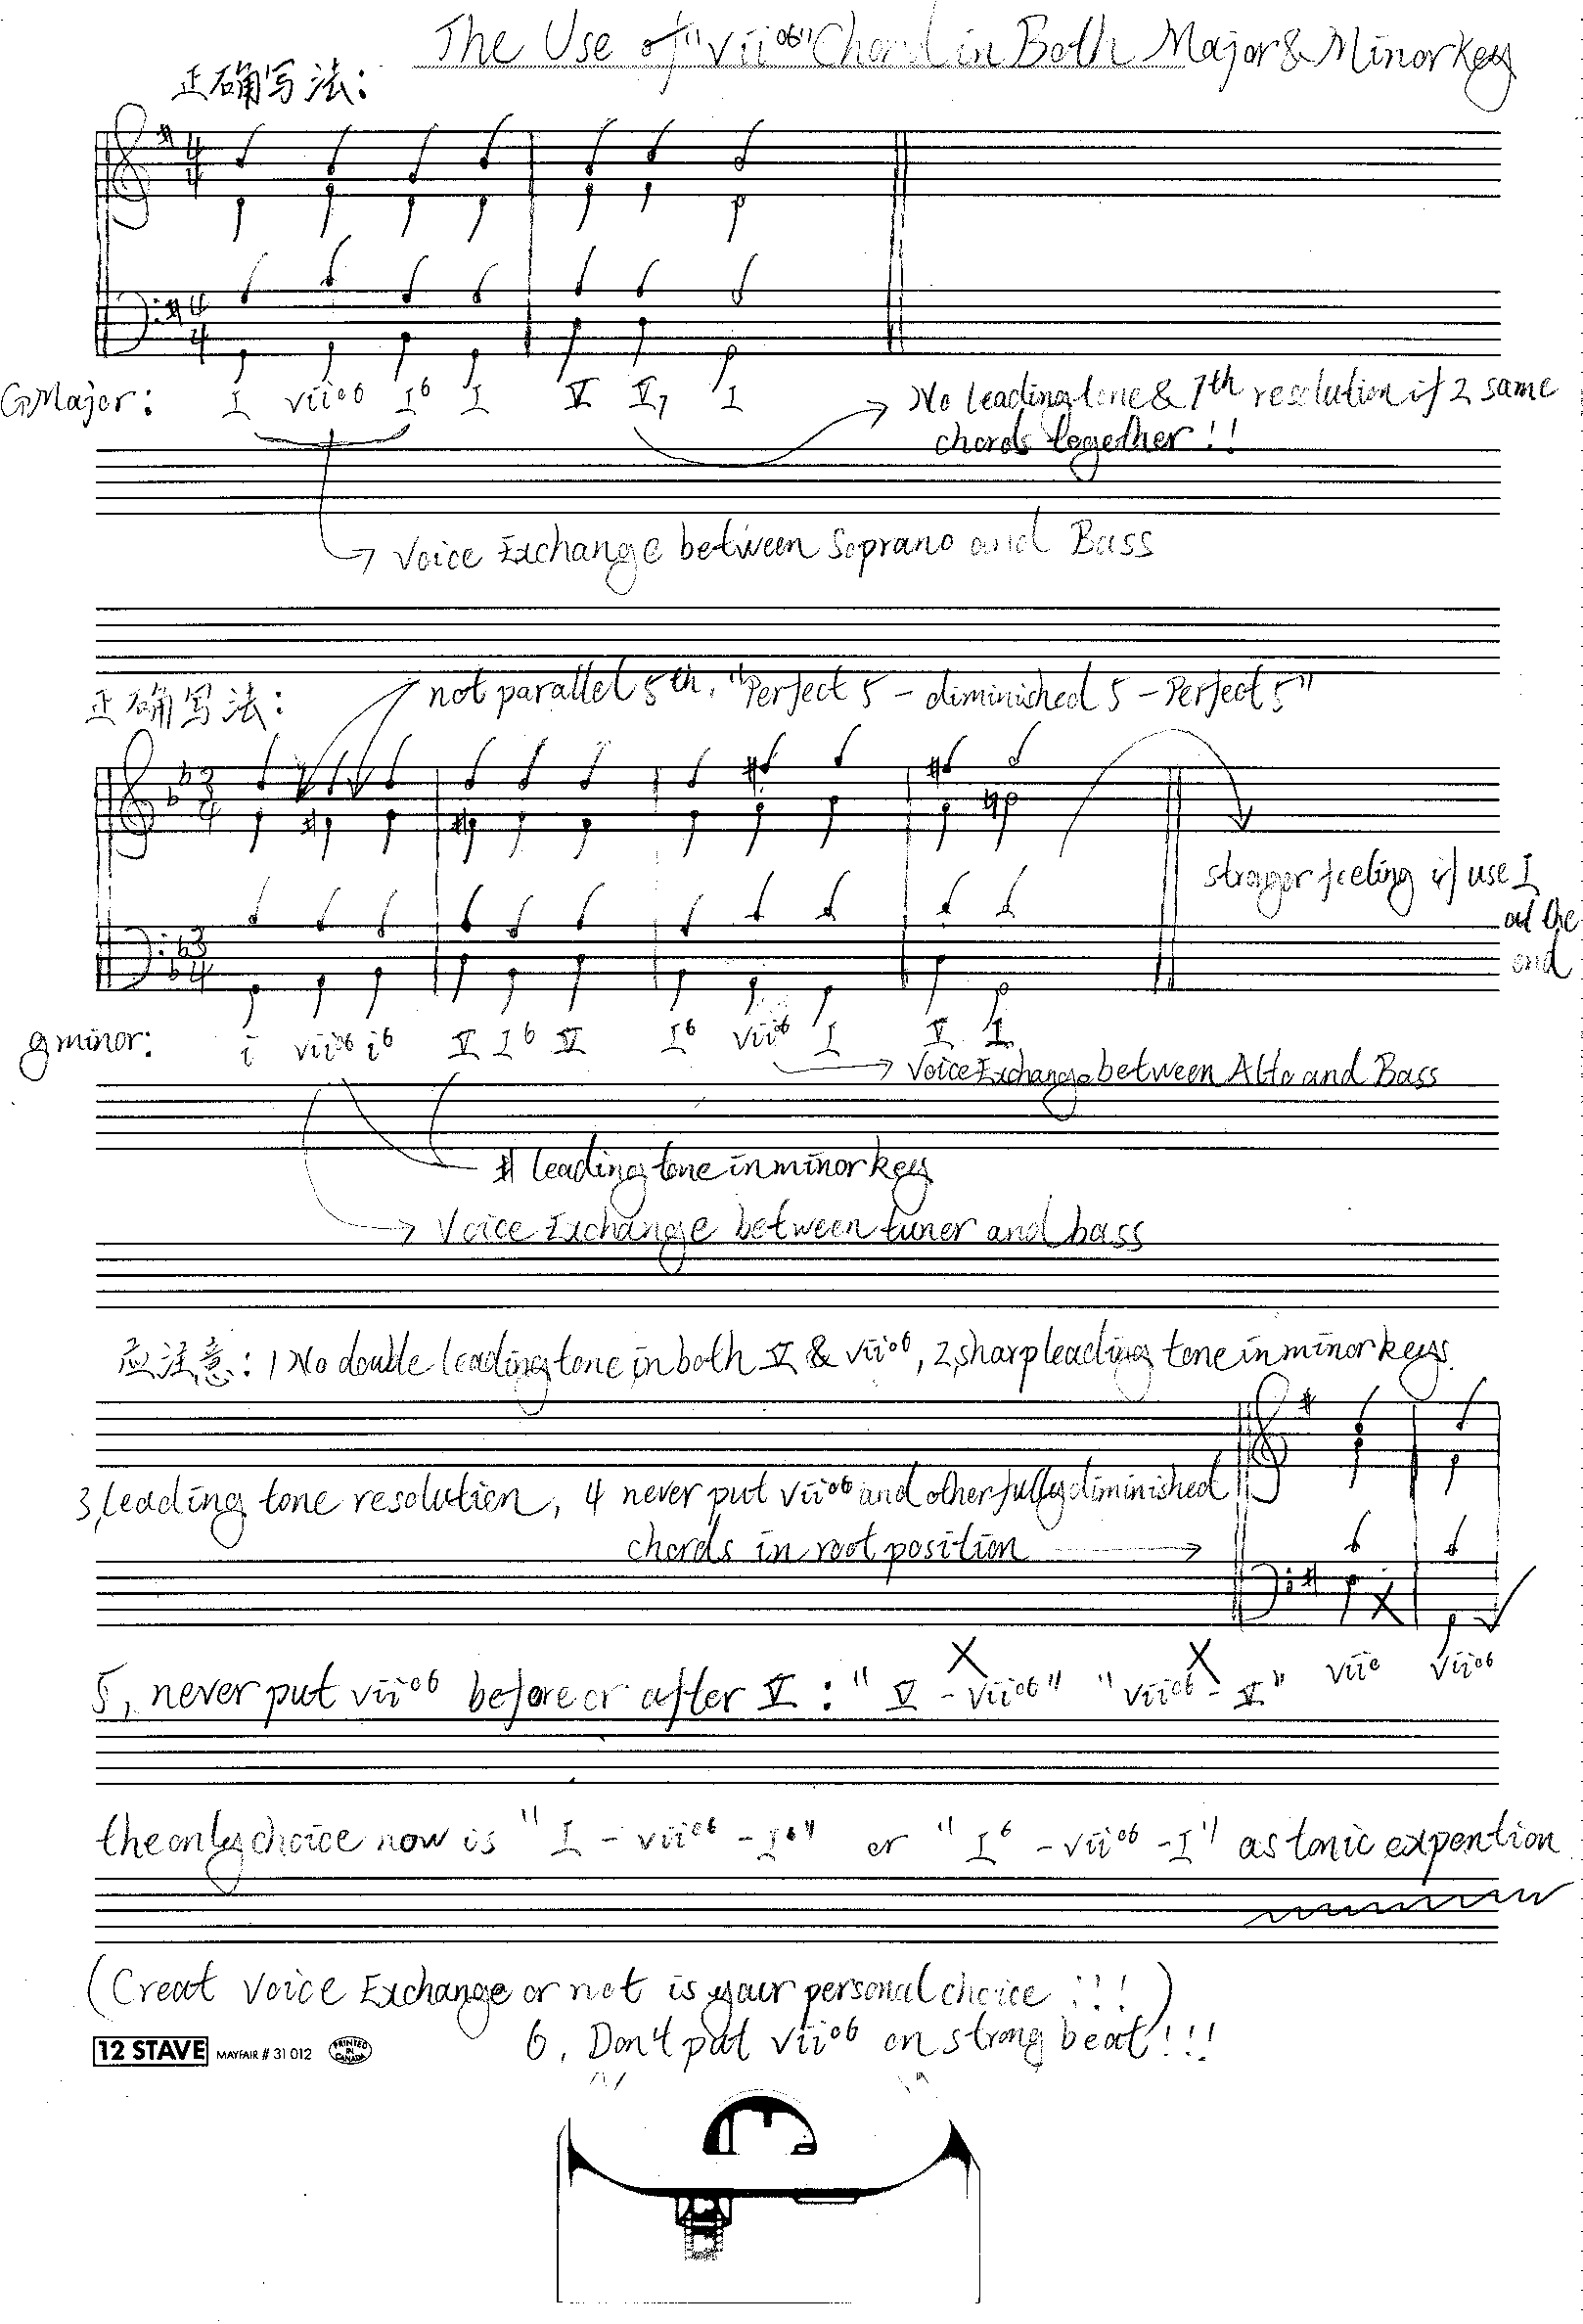 The Use of "vii°6" Chord in Both Major & Minor Key
正确写法:
4
4
4
4
G Major: I vii°6 I6 I V V7 I
No leading tone & 7th resolution if 2 same
chords together!!
Voice Exchange between Soprano and Bass
正确写法:
not parallel 5th, "Perfect 5 - diminished 5 - Perfect 5"
3
4
3
4
stronger feeling if use I
at the
end
g minor: i vii°6 i6 V I6 V I6 vii°6 I V I
Voice Exchange between Alto and Bass
# leading tone in minor key
Voice Exchange between tuner and bass
应注意: 1 No double leading tone in both V & vii°6, 2, sharp leading tone in minor keys.
3, leading tone resolution, 4 never put vii°6 and other fully diminished
chords in root position
vii° vii°6
5, never put vii°6 before or after V: "V - vii°6" "vii°6 - V"
the only choice now is "I - vii°6 - I6" or "I6 - vii°6 - I" as tonic expention
(Creat Voice Exchange or not is your personal choice !!!)
6, Don't put vii°6 on strong beat!!!
12 STAVE MAYFAIR # 31 012 PRINTED IN CANADA